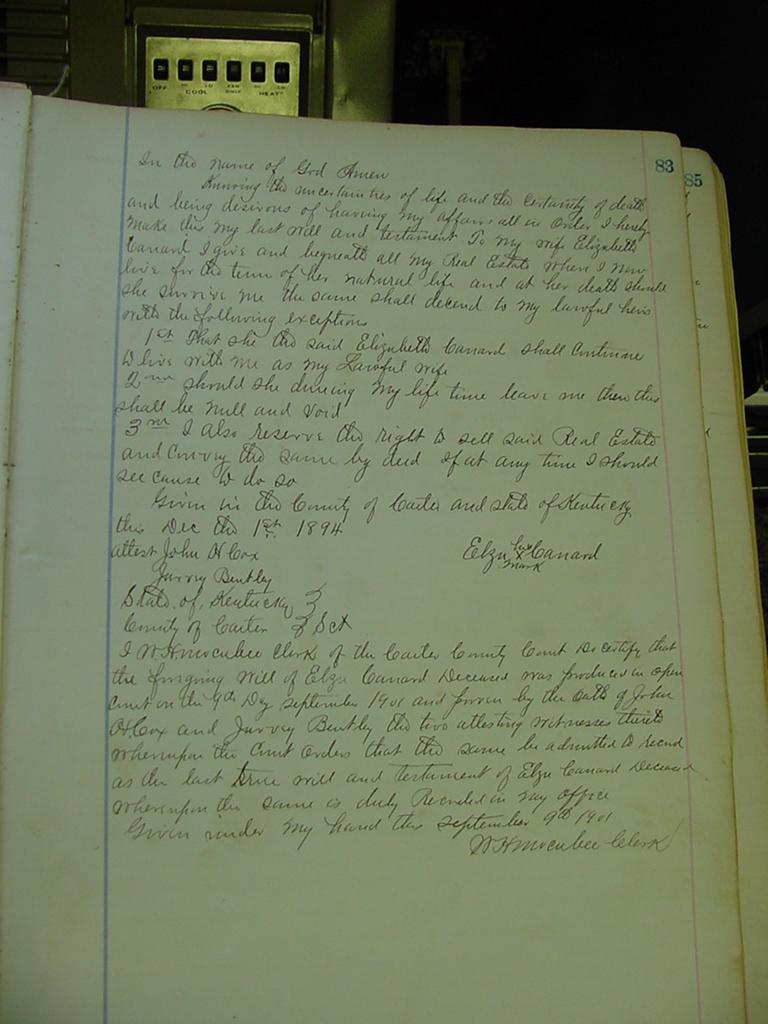 OFF HI LO FAN ONLY HI LO
COOL HEAT
83
85
In the name of God Amen
Knowing the uncertainties of life and the certainty of death
and being desirous of having my affairs all in order I hereby
make this my last will and testament To my wife Elizabeth
Canard I give and bequeath all my Real Estate where I now
live for the term of her natural life and at her death should
she survive me the same shall decend to my lawful heirs
with the following exceptions
1st That she the said Elizabeth Canard shall Continue
to live with me as my Lawful wife
2nd should she dureing my life time leave me then this
shall be null and void
3rd I also reserve the right to sell said Real Estate
and Convey the same by deed if at any time I should
see cause to do so
Given in the County of Carter and state of Kentucky
this Dec the 1st 1894
attest John H Cox Elzu his X mark Canard
Jurvey Bentley
State of Kentucky }
County of Carter } Sct
I W.H. Mocubee Clerk of the Carter County Court Do certify that
the forgoing will of Elzu Canard Deceased was produced in open
Court on the 9th Day September 1901 and proven by the oath of John
H. Cox and Jurvey Bentley the two attesting witnesses thereto
whereupon the Court orders that the same be admitted to record
as the last true will and testament of Elzu Canard Deceased
whereupon the same is duly Recorded in my office
Given under my hand this September 9th 1901
W H Mocubee Clerk